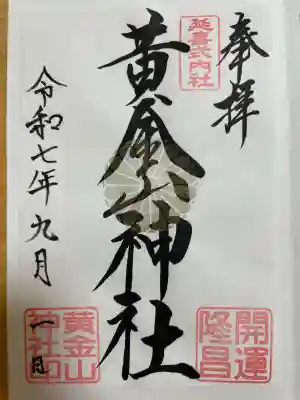 奉拝
延喜式内社
黄金山神社
開運
隆昌
令和七年九月一日
黄金山
神社印